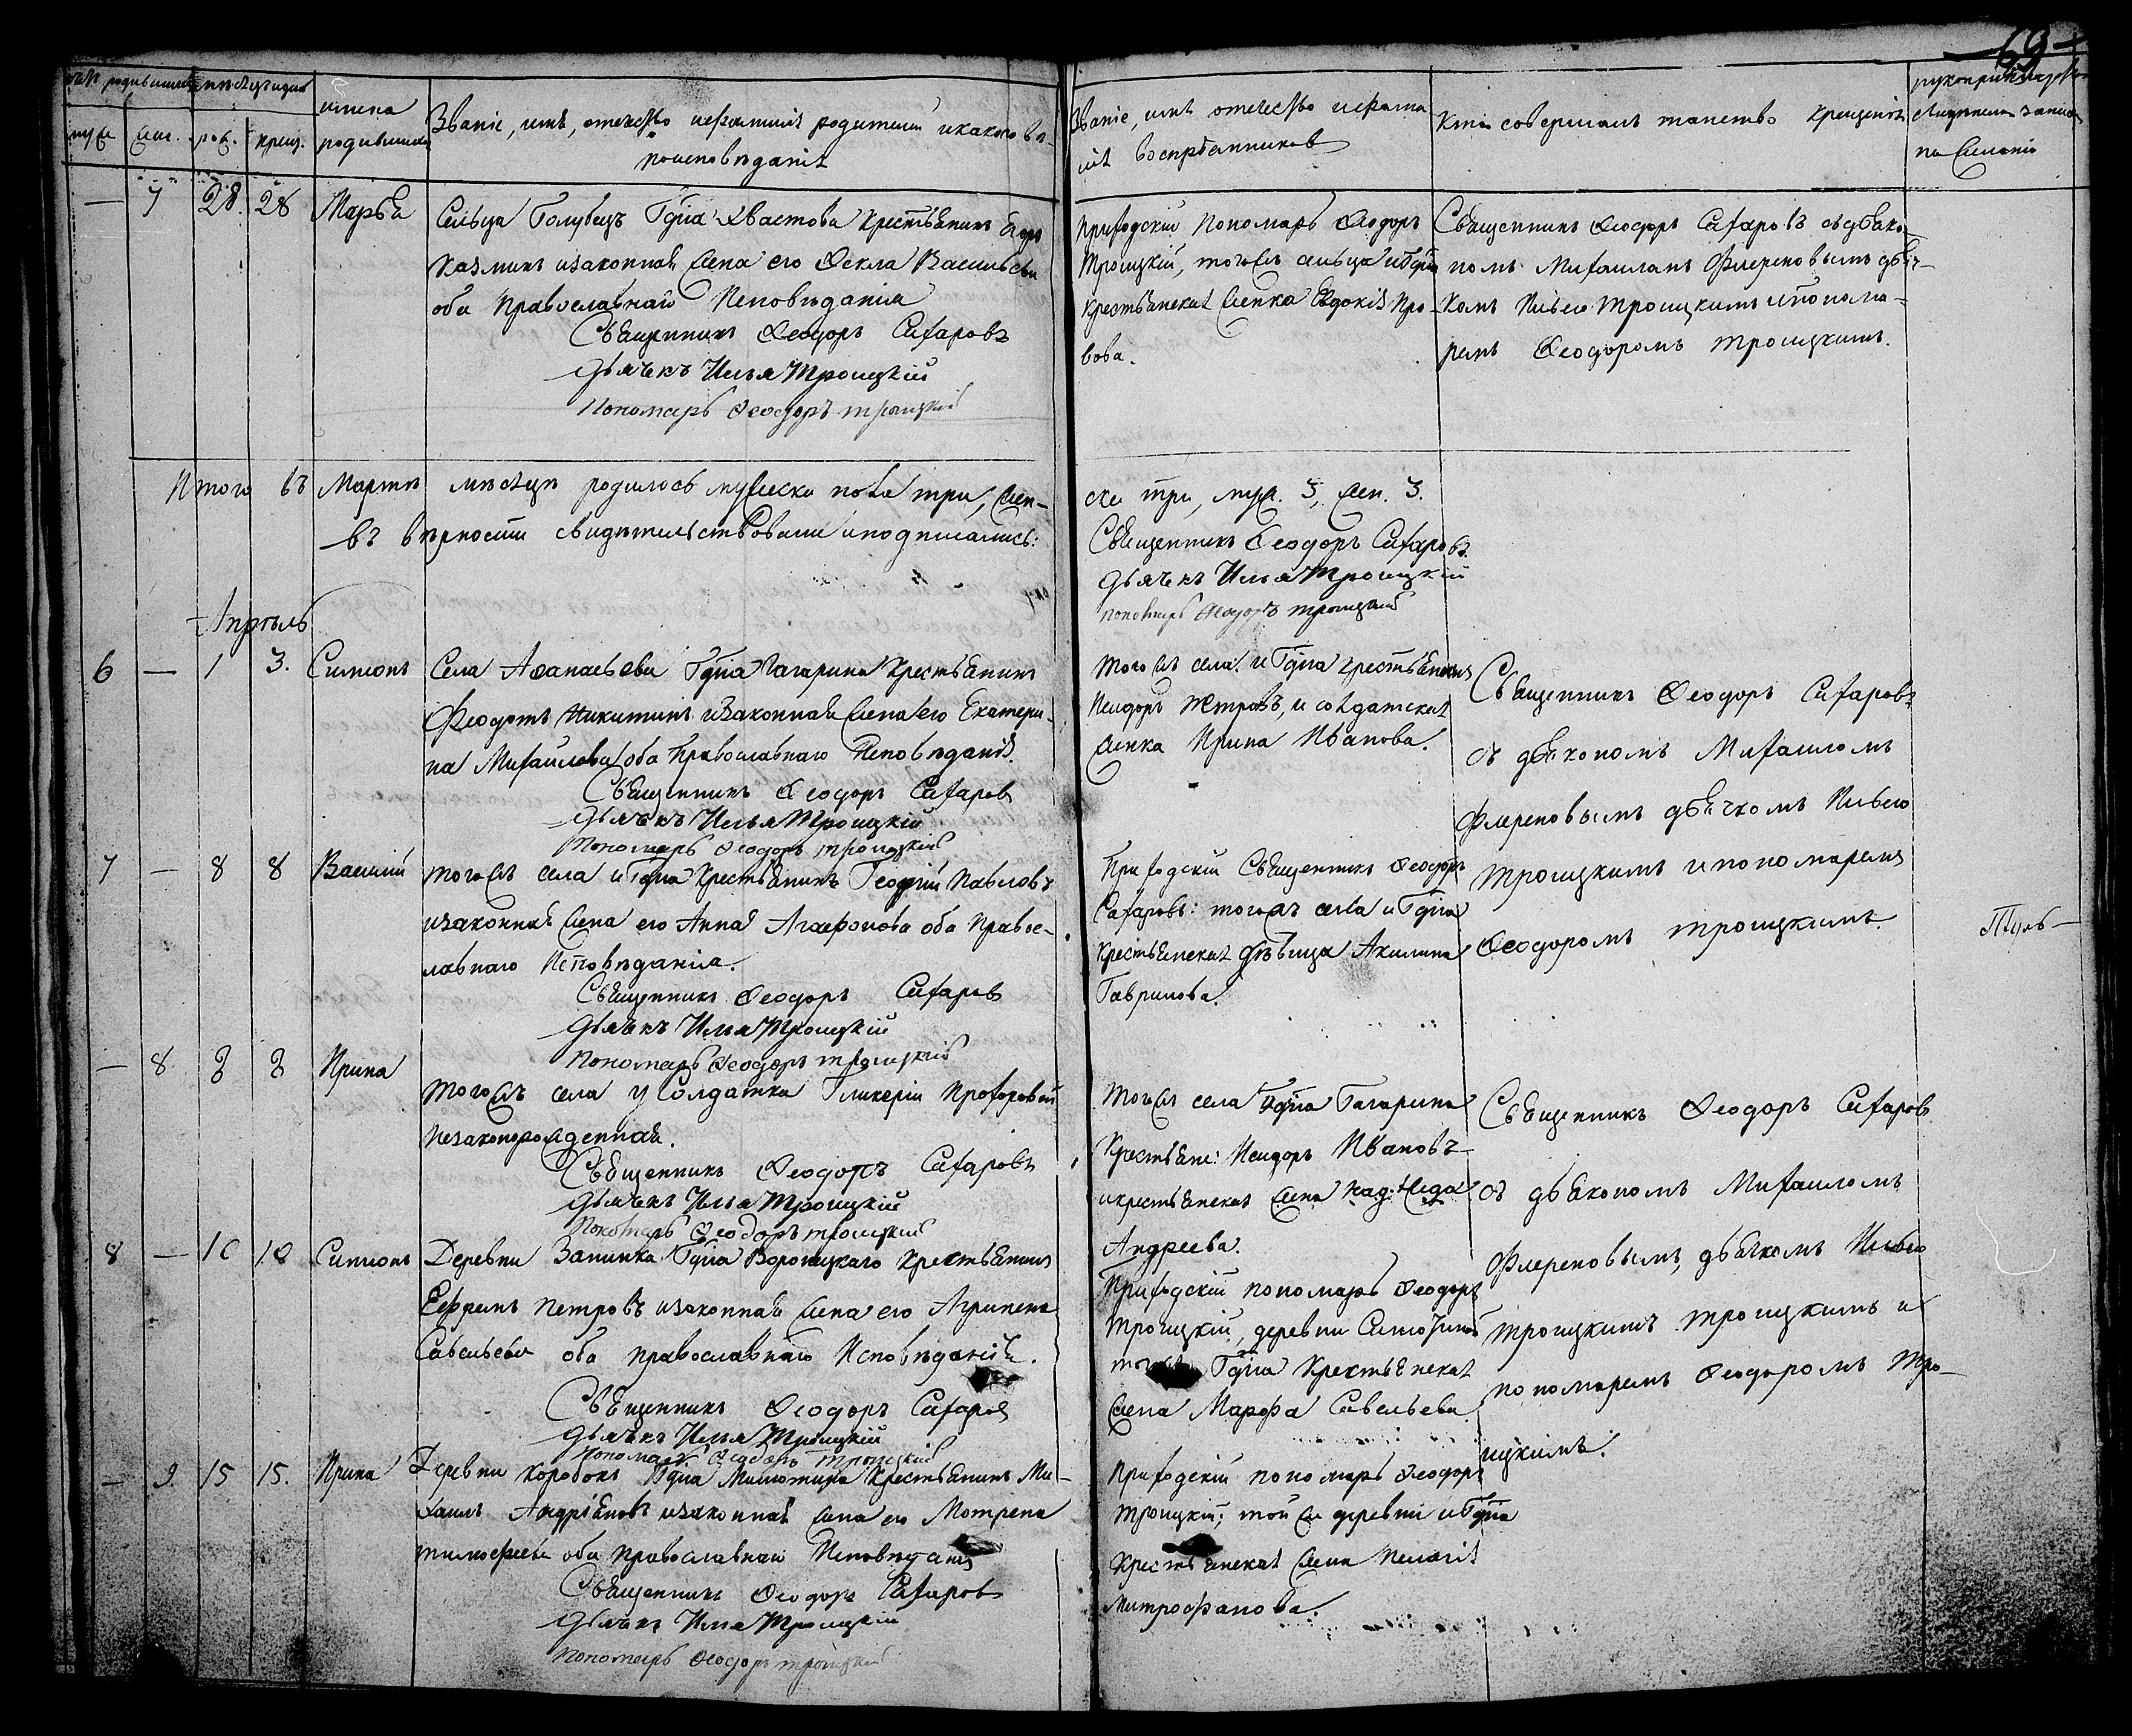 69
имена
родившихся
Званіе, имя, отчество и фамилія родителей и какого вѣ-
роисповѣданія
Званіе, имя отечество и фами-
лія воспріемниковъ
Кто совершалъ таинство крещенія
муж. жен. рож. крещ.
— 7 28. 28 Марья
Сельца Голубецъ Гдна Хвастова крестьянинъ Егоръ
Казминъ и законная жена его Ѳекла Васильева
оба Православнаго Исповѣданія
Священникъ Ѳеодоръ Сахаровъ
Дьячекъ Илья Троицкій
Пономарь Ѳеодоръ Троицкій
Приходскій Пономарь Ѳеодоръ
Троицкій, тогожъ сельца и Гдна
крестьянская женка Евдокія Про-
вова.
Священникъ Ѳеодоръ Сахаровъ съ дьяко-
номъ Михаиломъ Флереновымъ дьяч-
комъ Ильею Троицкимъ и понома-
ремъ Ѳеодоромъ Троицкимъ.
Итого въ Мартѣ мѣсяцѣ родилось мужеска пола три, жен-
ска три, муж. 3, жен. 3.
въ вѣрности свидѣтельствовали и подписались:
Священникъ Ѳеодоръ Сахаровъ
Дьячекъ Илья Троицкій
пономарь Ѳеодоръ Троицкій
Апрѣль
6 — 1 3. Симонъ
Села Аѳанасьева Гдна Гагарина крестьянинъ
Феодотъ Никитинъ и законная жена его Екатери-
на Михайлова оба Православнаго Исповѣданія.
Священникъ Ѳеодоръ Сахаровъ
Дьячекъ Илья Троицкій
Пономарь Ѳеодоръ Троицкій
Тогожъ села и Гдна крестьянинъ
Исидоръ Петровъ, и солдатская
женка Ирина Иванова.
Священникъ Ѳеодоръ Сахаровъ
съ дьякономъ Михаиломъ
Флереновымъ дьячкомъ Ильею
Троицкимъ и пономаремъ
Ѳеодоромъ Троицкимъ.
7 — 8 8 Василій
Тогожъ села и Гдна крестьянинъ Георгій Павловъ
и законная жена его Анна Агаѳонова оба Правос-
лавнаго Исповѣданія.
Священникъ Ѳеодоръ Сахаровъ
Дьячекъ Илья Троицкій
Пономарь Ѳеодоръ Троицкій
Приходскій Священникъ Ѳеодоръ
Сахаровъ: тогожъ села и Гдна
крестьянская дѣвица Акилина
Гаврилова.
— 8 8 8 Ирина
Тогожъ села у Солдатки Гликеріи Прохоровой
незаконорожденная.
Священникъ Ѳеодоръ Сахаровъ
Дьячекъ Илья Троицкій
Пономарь Ѳеодоръ Троицкій
Тогожъ села Гдна Гагарина
Крестьяне: Исидоръ Ивановъ
и крестьянская жена Надежда
Андреева.
Священникъ Ѳеодоръ Сахаровъ
съ дьякономъ Михаиломъ
Флереновымъ, дьячкомъ Ильею
Троицкимъ Троицкимъ и
пономаремъ Ѳеодоромъ Тро-
ицкимъ.
8 — 10 10 Симонъ
Деревни Замишка Гдна Вороницкаго крестьянинъ
Ефремъ Петровъ и законная жена его Агрипена
Савельева оба православнаго Исповѣданія.
Священникъ Ѳеодоръ Сахаровъ
Дьячекъ Илья Троицкій
Пономарь Ѳеодоръ Троицкій
Приходскій пономарь Ѳеодоръ
Троицкій, деревни
Гдна Крестьянская
жена Марѳа Савельева
— 9. 15 15. Ирина
Деревни Коробокъ Гдна Милютина крестьянинъ Ми-
хаилъ Андріяновъ и законная жена его Мотрена
Тимоѳеева оба Православнаго Исповѣданія
Священникъ Ѳеодоръ Сахаровъ
Дьячекъ Илья Троицкій
Пономарь Ѳеодоръ Троицкій
Приходскій пономарь Ѳеодоръ
Троицкій; той же деревни и Гдна
Крестьянская жена Пелагія
Митрофанова.